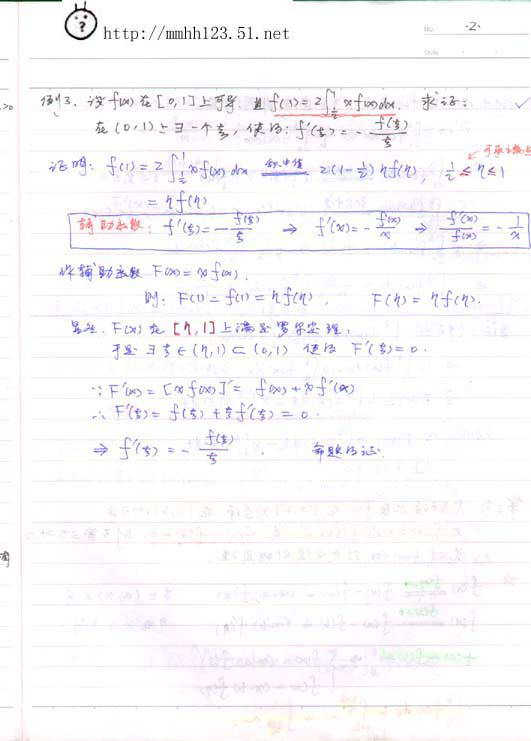 http://mmhh123.51.net
No. ·2·
Date
例3. 设 f(x) 在 [0,1] 上可导, 且 f(1) = 2∫_{1/2}^{1} x f(x) dx. 求证:
在 (0,1) 上 ∃ 一个 ξ, 使得: f'(ξ) = - f(ξ)/ξ
证明: f(1) = 2∫_{1/2}^{1} x f(x) dx 积中值 2(1-1/2) η f(η), 1/2 ≤ η ≤ 1
= η f(η)
辅助函数: f'(ξ) = - f(ξ)/ξ ⇒ f'(x) = - f(x)/x ⇒ f'(x)/f(x) = - 1/x
作辅助函数 F(x) = x f(x).
则: F(1) = f(1) = η f(η), F(η) = η f(η).
显然, F(x) 在 [η,1] 上满足罗尔定理,
于是 ∃ ξ ∈ (η,1) ⊂ (0,1) 使得 F'(ξ) = 0.
∵ F'(x) = [x f(x)]' = f(x) + x f'(x)
∴ F'(ξ) = f(ξ) + ξ f'(ξ) = 0.
⇒ f'(ξ) = - f(ξ)/ξ. 命题得证.